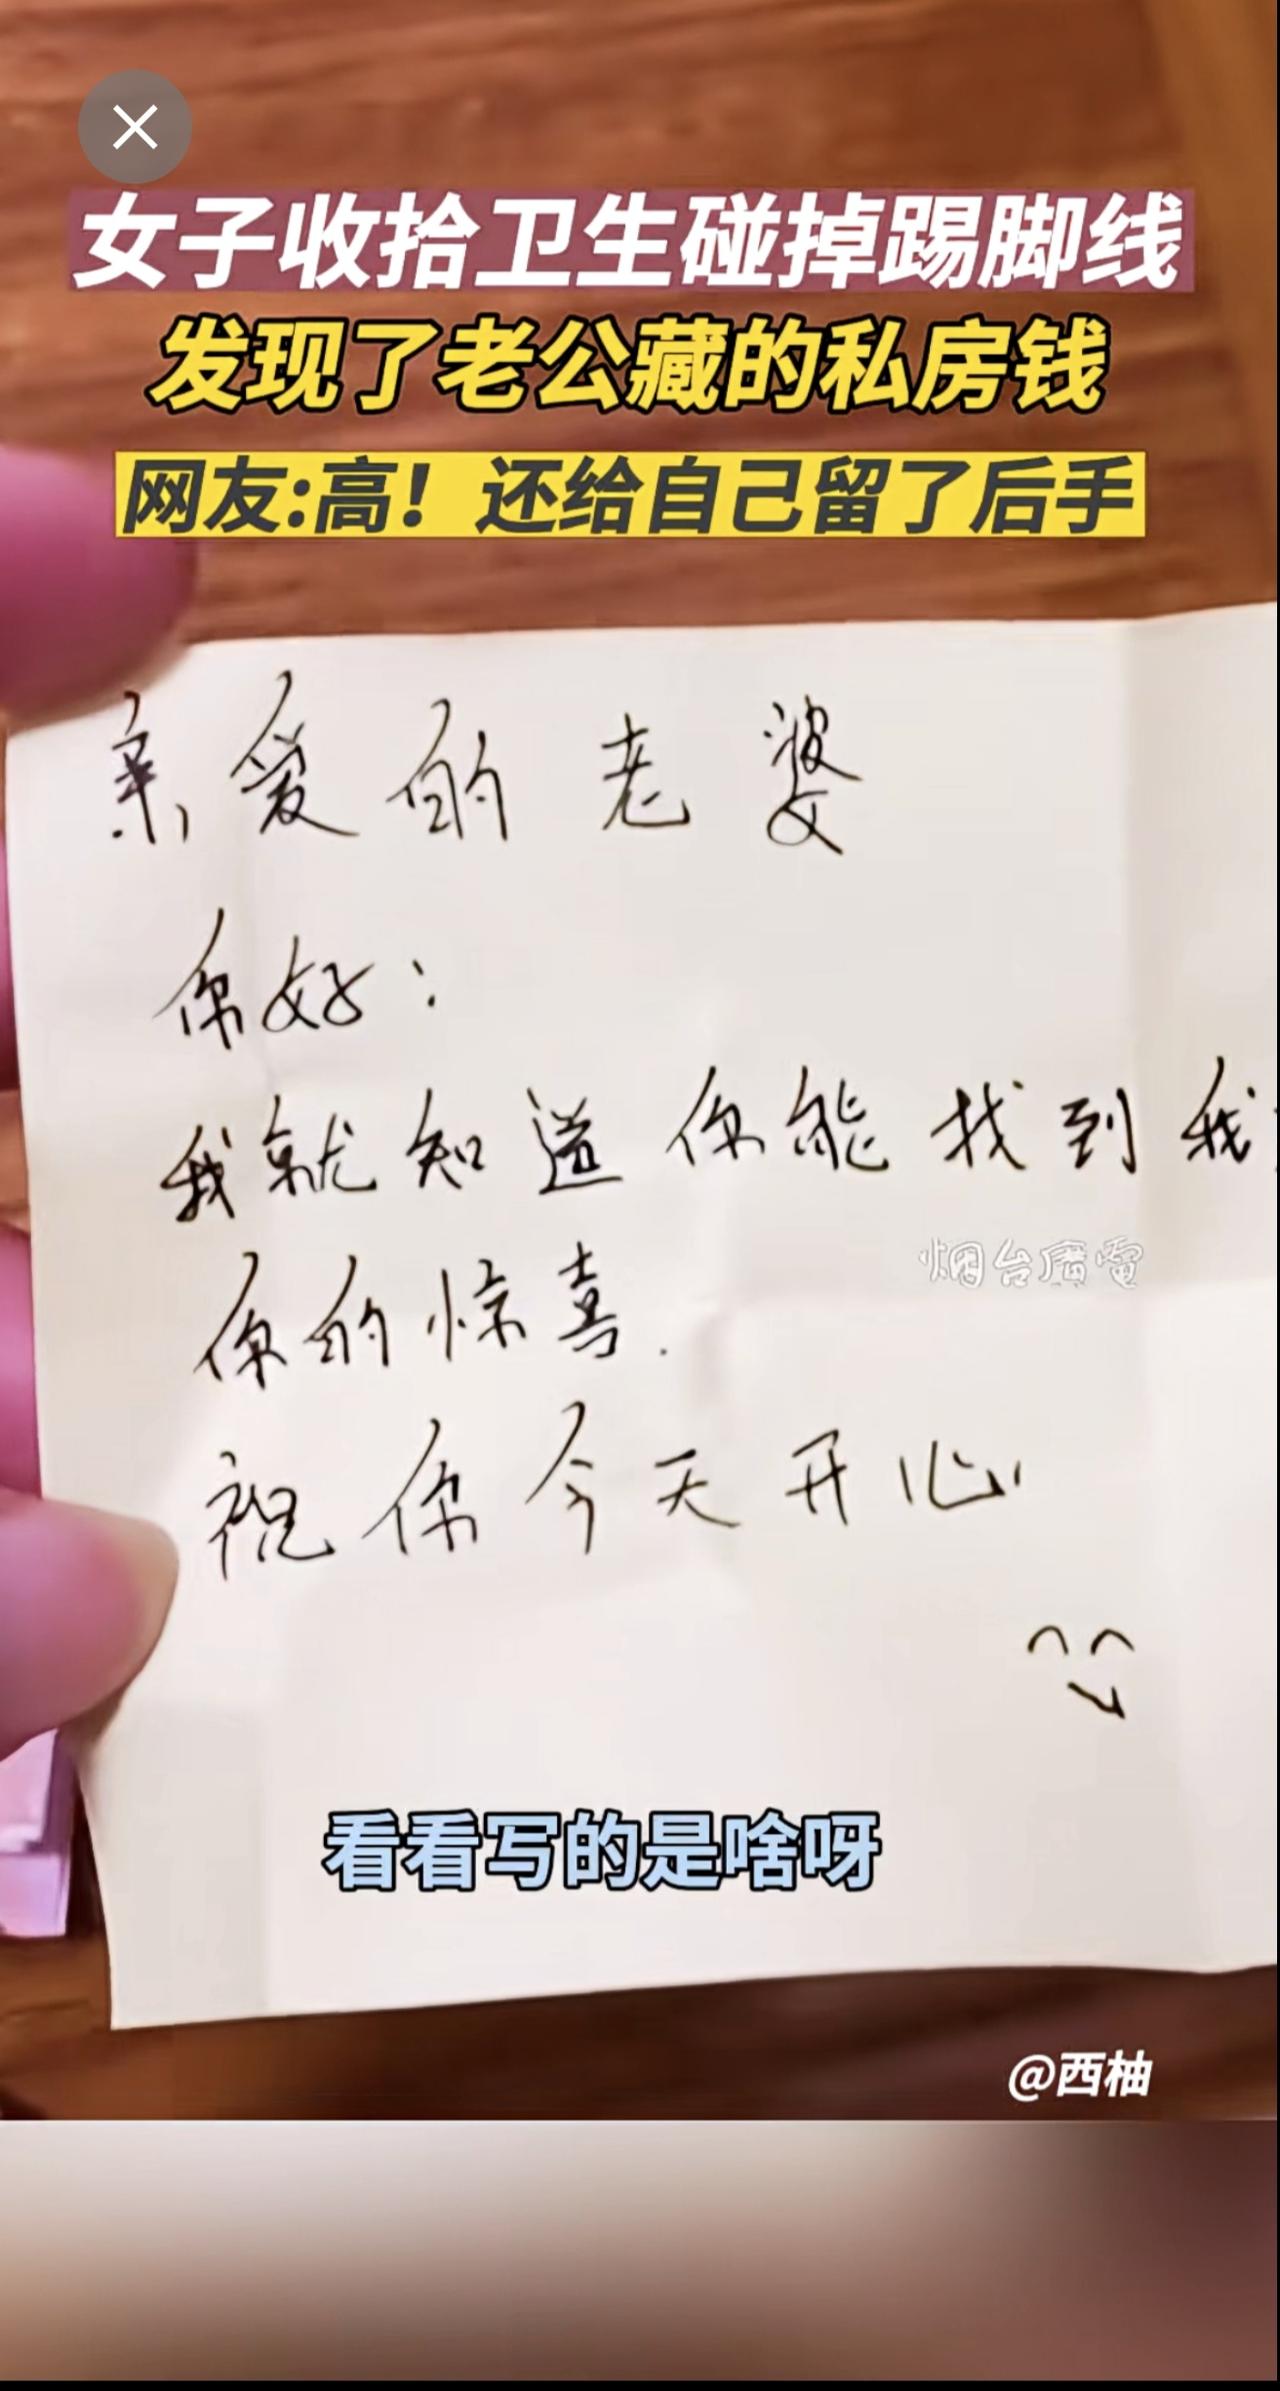 女子收拾卫生碰掉踢脚线
发现了老公藏的私房钱
网友:高！还给自己留了后手
亲爱的老婆
你好：
我就知道你能找到我
你的惊喜.
祝你今天开心
烟台廣電
看看写的是啥呀
@西柚